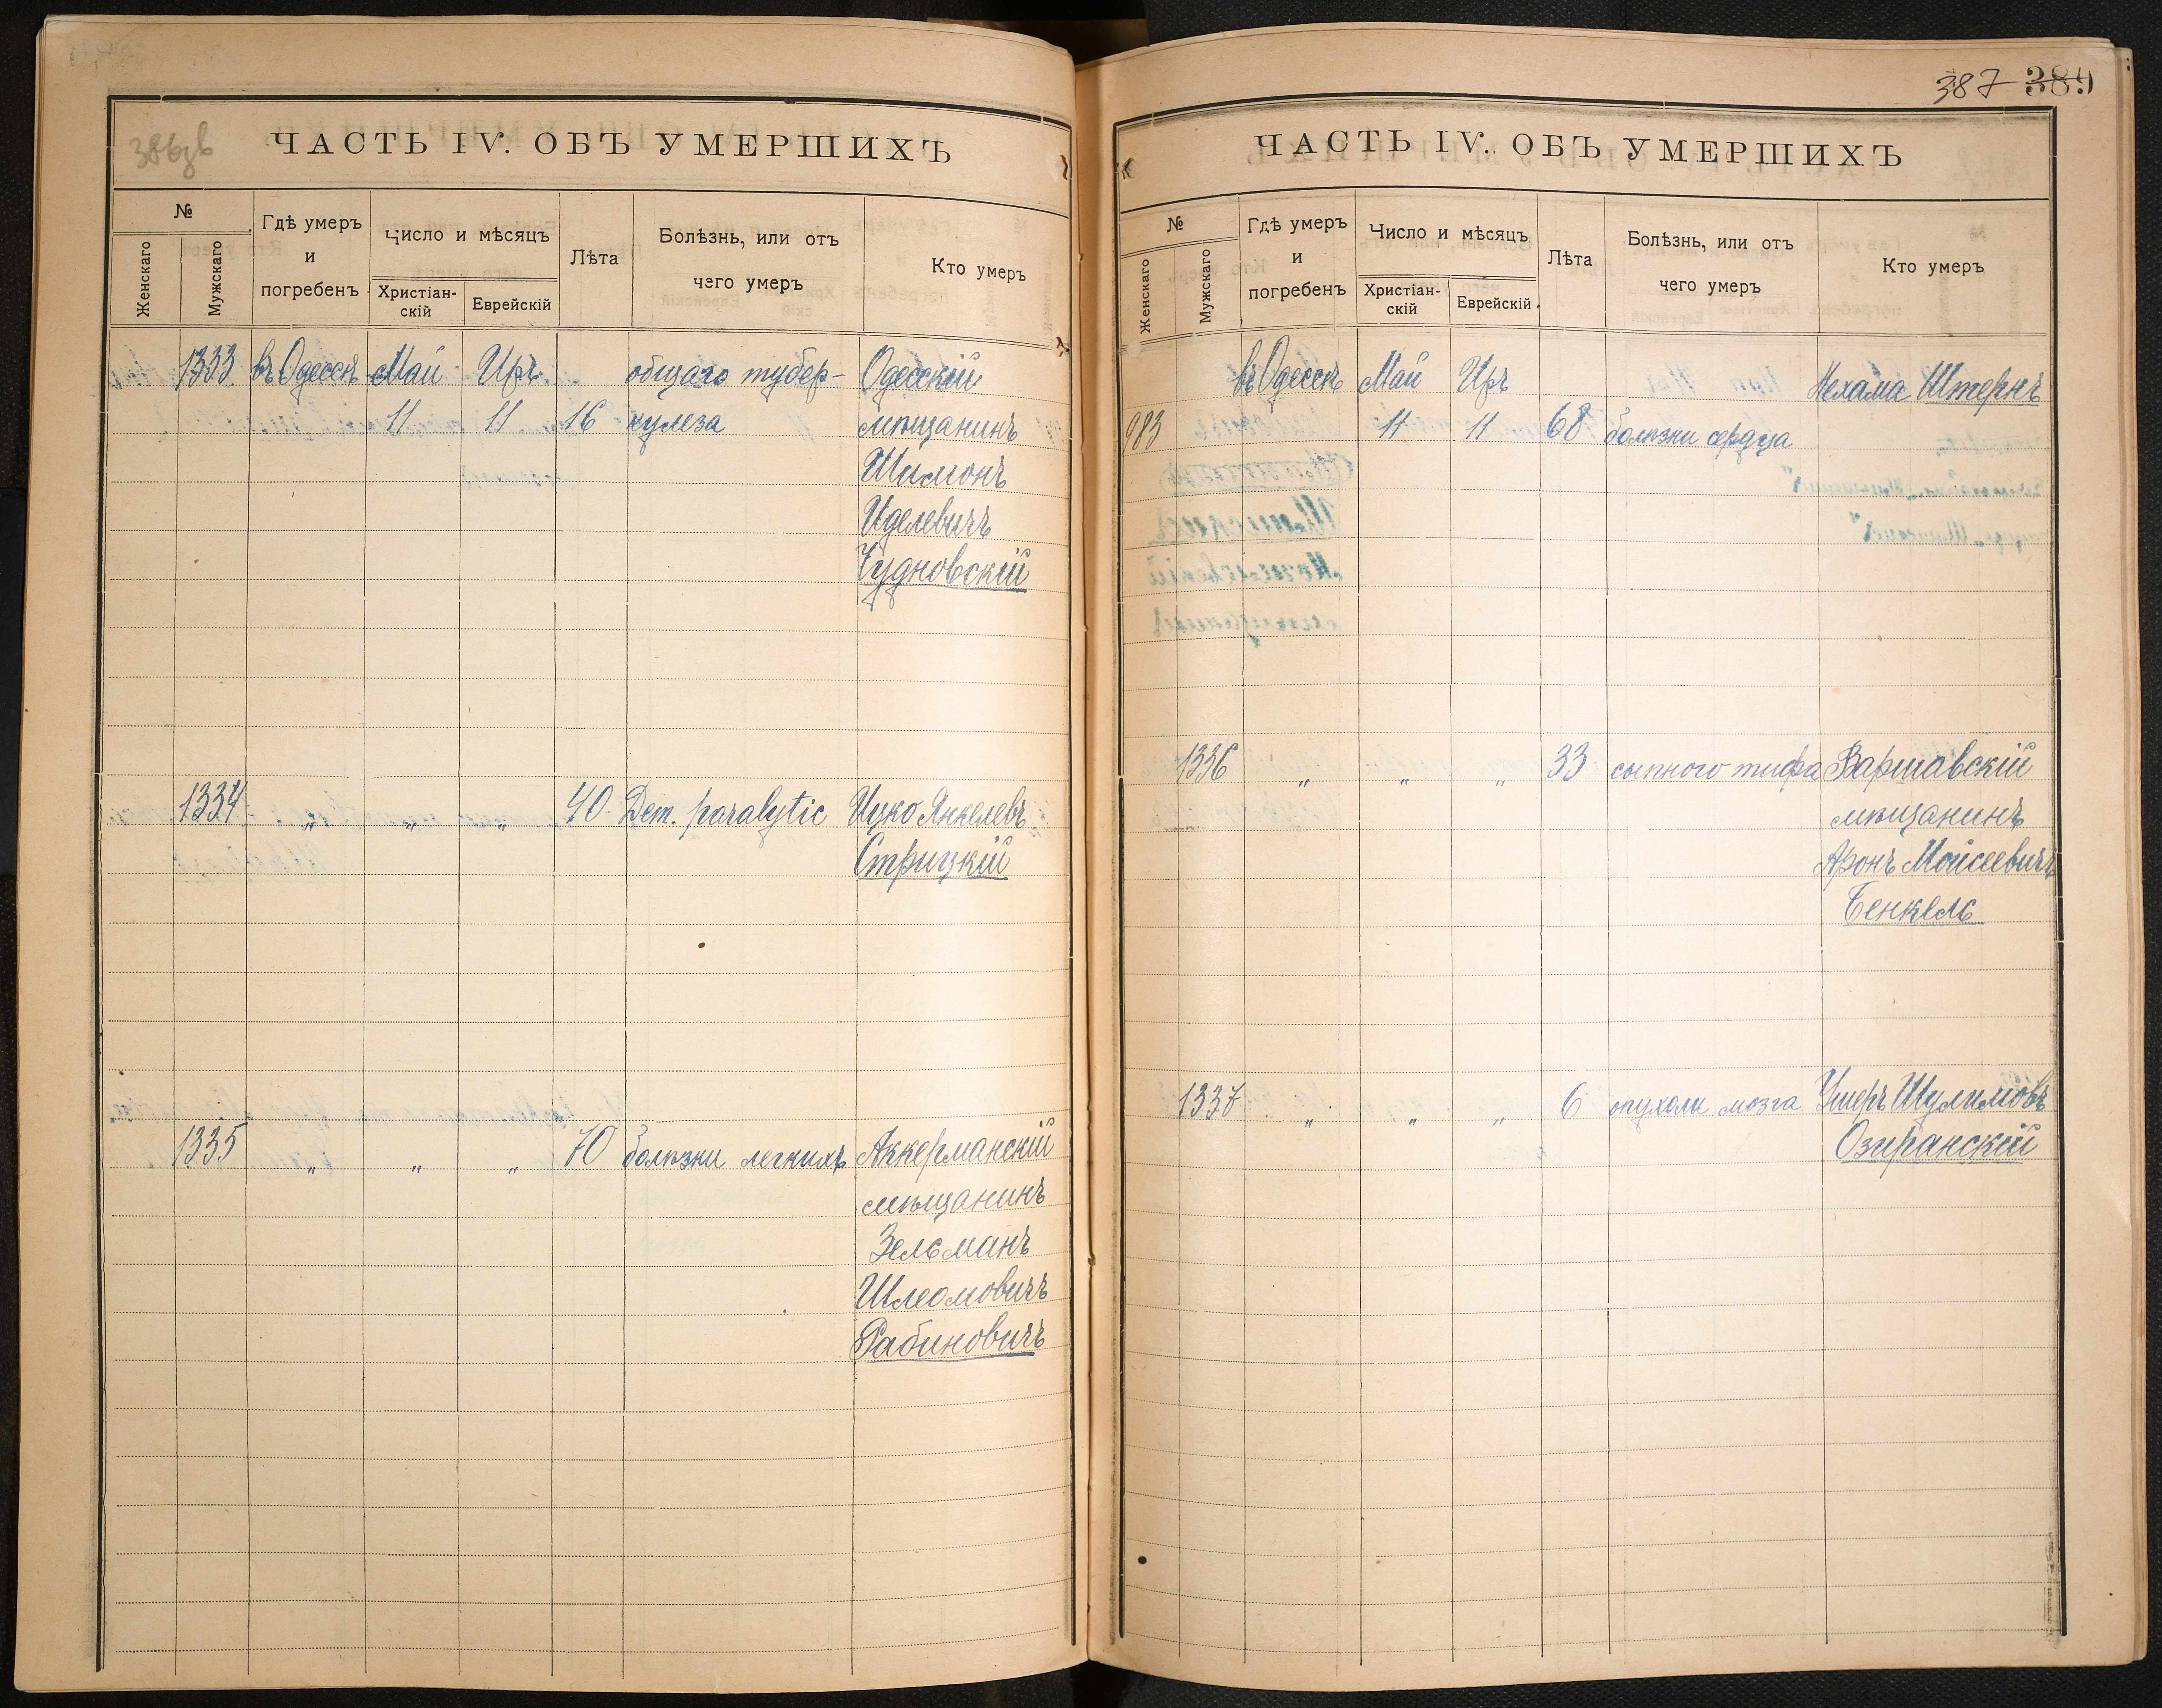 386зв
ЧАСТЬ IV. ОБЪ УМЕРШИХЪ
№
Женскаго
Мужскаго
Гдѣ умеръ
и
погребенъ
Число и мѣсяцъ
Христіан-
скій
Еврейскій
Лѣта
Болѣзнь, или отъ
чего умеръ
Кто умеръ
1333 въ Одессѣ Май Иръ общаго тубер- Одесскій
11 11 16 кулеза мѣщанинъ
Шимонъ
Иделевичъ
Чудновскій
1334 „ „ „ 40 Dem. paralytic Ицко Янкелевъ
Стрицкій
1335 „ „ „ 70 болѣзни легкихъ Аккерманскій
мѣщанинъ
Зельманъ
Шлеомовичъ
Рабиновичъ
387 389
ЧАСТЬ IV. ОБЪ УМЕРШИХЪ
№
Женскаго
Мужскаго
Гдѣ умеръ
и
погребенъ
Число и мѣсяцъ
Христіан-
скій
Еврейскій
Лѣта
Болѣзнь, или отъ
чего умеръ
Кто умеръ
въ Одессѣ Май Иръ Нехама Штернъ
983 11 11 68 болѣзни сердца
1336 „ „ „ 33 сыпного тифа Варшавскій
мѣщанинъ
Аронъ Мойсеевичъ
Бенкель
1337 „ „ „ 6 опухоли мозга Ушеръ Шулимовъ
Озиранскій